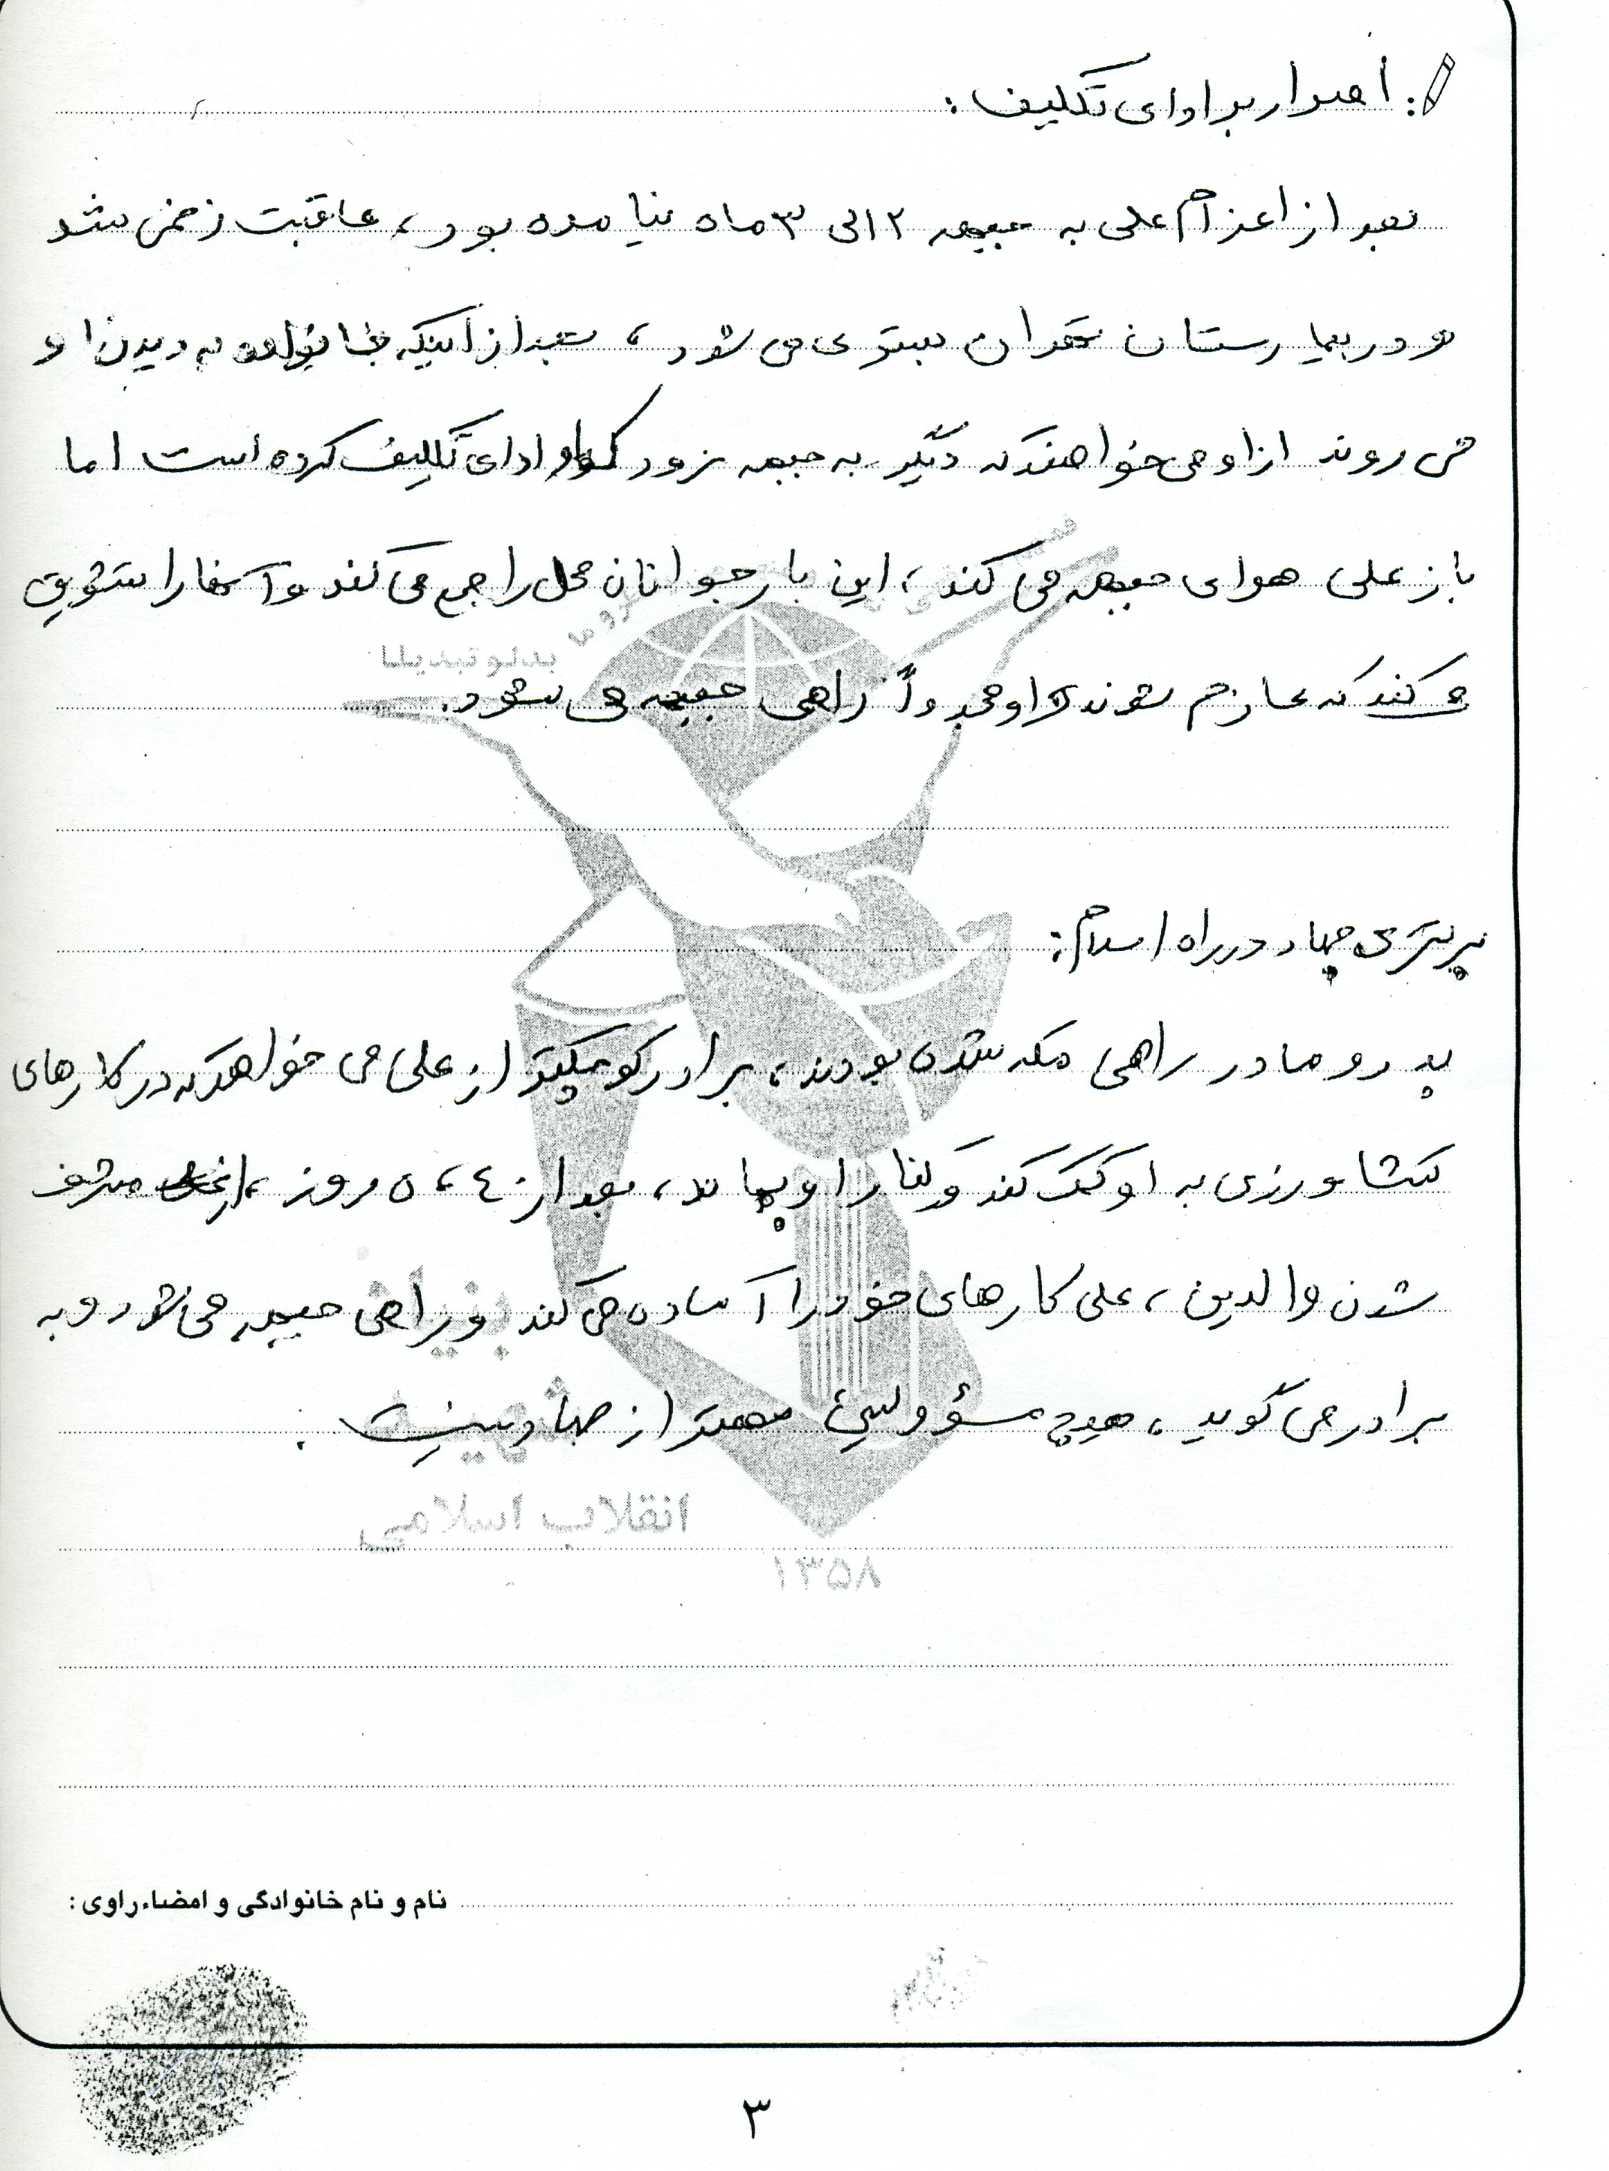 اصرار بر ادای تکلیف :
بعد از اعزام علی به جبهه ۲ الی ۳ ماه نیامده بود، عاقبت زخمی شد
و در بیمارستان تهران بستری می شود، بعد از اینکه خانواده به دیدن او
می روند از او می خواهند که دیگر به جبهه نرود ادای تکلیف کرده است اما
باز علی هوای جبهه می کند، این بار جوانان محل را جمع می کند و آنها را تشویق
می کند که عازم شوند و او مجدداً راهی جبهه می شود.
برتری جهاد در راه اسلام :
پدر و مادر راهی مکه شده بودند، برادر کوچکتر از علی می خواهد که در کارهای
کشاورزی به او کمک کند و کنار او بماند، بعد از ۴، ۵ روز، از مشرف
شدن والدین، علی کارهای خود را آماده می کند و راهی جبهه می شود و به
برادر می گوید، هیچ مسؤولیتی مهمتر از جهاد نیست.
بدلو تبدیلا
بنیاد
شهید
انقلاب اسلامی
۱۳۵۸
نام و نام خانوادگی و امضاء راوی :
۳